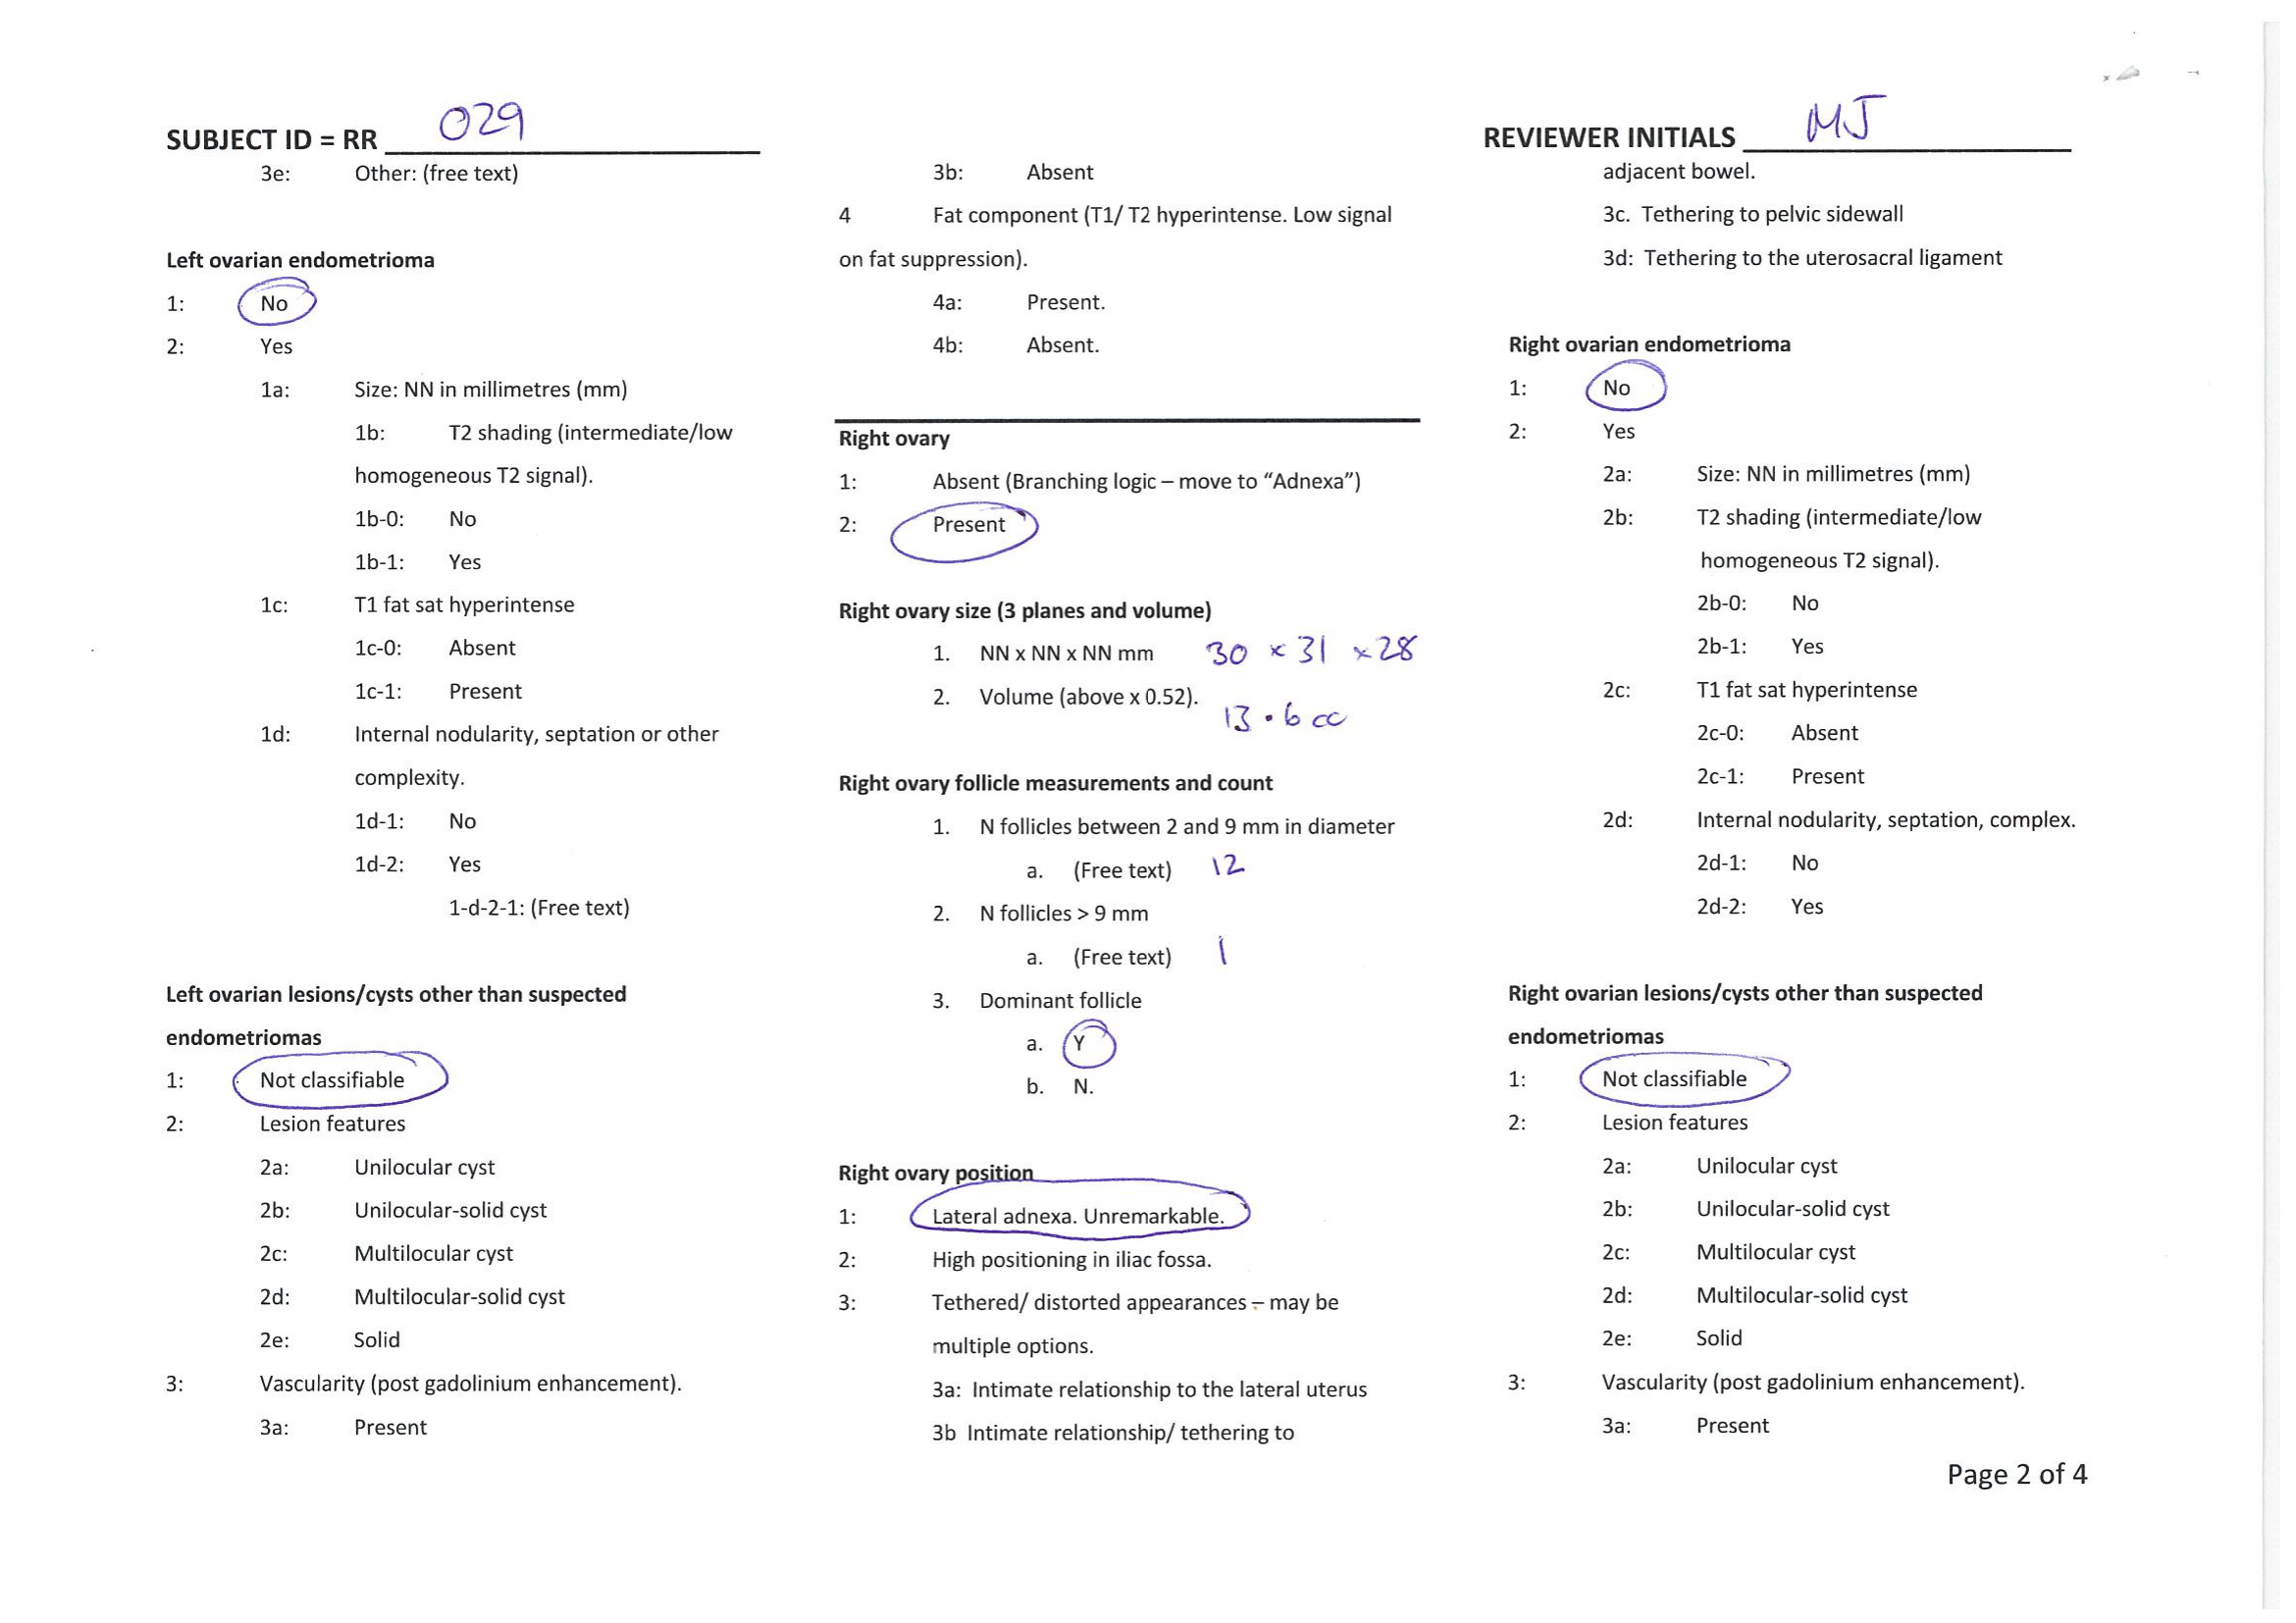 SUBJECT ID = RR 029
3e: Other: (free text)
Left ovarian endometrioma
1: No
2: Yes
1a: Size: NN in millimetres (mm)
1b: T2 shading (intermediate/low
homogeneous T2 signal).
1b-0: No
1b-1: Yes
1c: T1 fat sat hyperintense
1c-0: Absent
1c-1: Present
1d: Internal nodularity, septation or other
complexity.
1d-1: No
1d-2: Yes
1-d-2-1: (Free text)
Left ovarian lesions/cysts other than suspected
endometriomas
1: Not classifiable
2: Lesion features
2a: Unilocular cyst
2b: Unilocular-solid cyst
2c: Multilocular cyst
2d: Multilocular-solid cyst
2e: Solid
3: Vascularity (post gadolinium enhancement).
3a: Present
3b: Absent
4 Fat component (T1/ T2 hyperintense. Low signal
on fat suppression).
4a: Present.
4b: Absent.
Right ovary
1: Absent (Branching logic – move to “Adnexa”)
2: Present
Right ovary size (3 planes and volume)
1. NN x NN x NN mm 30 x 31 x 28
2. Volume (above x 0.52).
13.6 cc
Right ovary follicle measurements and count
1. N follicles between 2 and 9 mm in diameter
a. (Free text) 12
2. N follicles > 9 mm
a. (Free text) 1
3. Dominant follicle
a. Y
b. N.
Right ovary position
1: Lateral adnexa. Unremarkable.
2: High positioning in iliac fossa.
3: Tethered/ distorted appearances – may be
multiple options.
3a: Intimate relationship to the lateral uterus
3b Intimate relationship/ tethering to
REVIEWER INITIALS MJ
adjacent bowel.
3c. Tethering to pelvic sidewall
3d: Tethering to the uterosacral ligament
Right ovarian endometrioma
1: No
2: Yes
2a: Size: NN in millimetres (mm)
2b: T2 shading (intermediate/low
homogeneous T2 signal).
2b-0: No
2b-1: Yes
2c: T1 fat sat hyperintense
2c-0: Absent
2c-1: Present
2d: Internal nodularity, septation, complex.
2d-1: No
2d-2: Yes
Right ovarian lesions/cysts other than suspected
endometriomas
1: Not classifiable
2: Lesion features
2a: Unilocular cyst
2b: Unilocular-solid cyst
2c: Multilocular cyst
2d: Multilocular-solid cyst
2e: Solid
3: Vascularity (post gadolinium enhancement).
3a: Present
Page 2 of 4